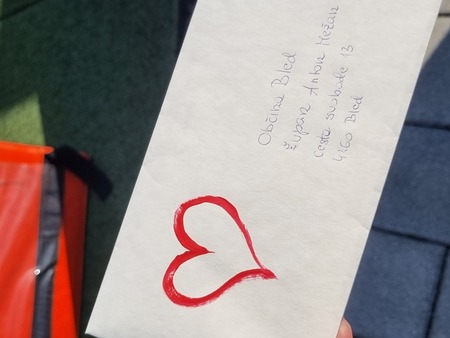 Občina Bled
Župan Anton Mežan
Cesta svobode 13
4260 Bled